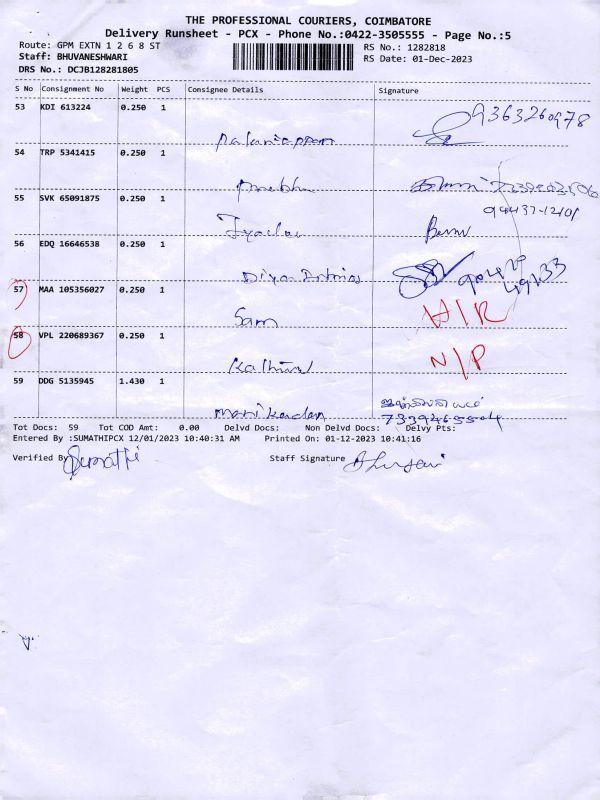 THE PROFESSIONAL COURIERS, COIMBATORE
Delivery Runsheet - PCX - Phone No.:0422-3505555 - Page No.:5
Route: GPM EXTN 1 2 6 8 ST
RS No.: 1282818
Staff: BHUVANESHWARI
RS Date: 01-Dec-2023
DRS No.: DCJB128281805
S No Consignment No Weight PCS Consignee Details Signature
53 KDI 613224 0.250 1 9363260978
Palaniappan
54 TRP 5341415 0.250 1
Prabhu
55 SVK 65091875 0.250 1 94437-12101
56 EDQ 16646538 0.250 1
57 MAA 105356027 0.250 1
Sam H/R
58 VPL 220689367 0.250 1 N/P
59 DDG 5135945 1.430 1
Manikandan 7339465504
Tot Docs: 59 Tot COD Amt: 0.00 Delvd Docs: Non Delvd Docs: Delvy Pts:
Entered By :SUMATHIPCX 12/01/2023 10:40:31 AM Printed On: 01-12-2023 10:41:16
Verified By Sumathi Staff Signature